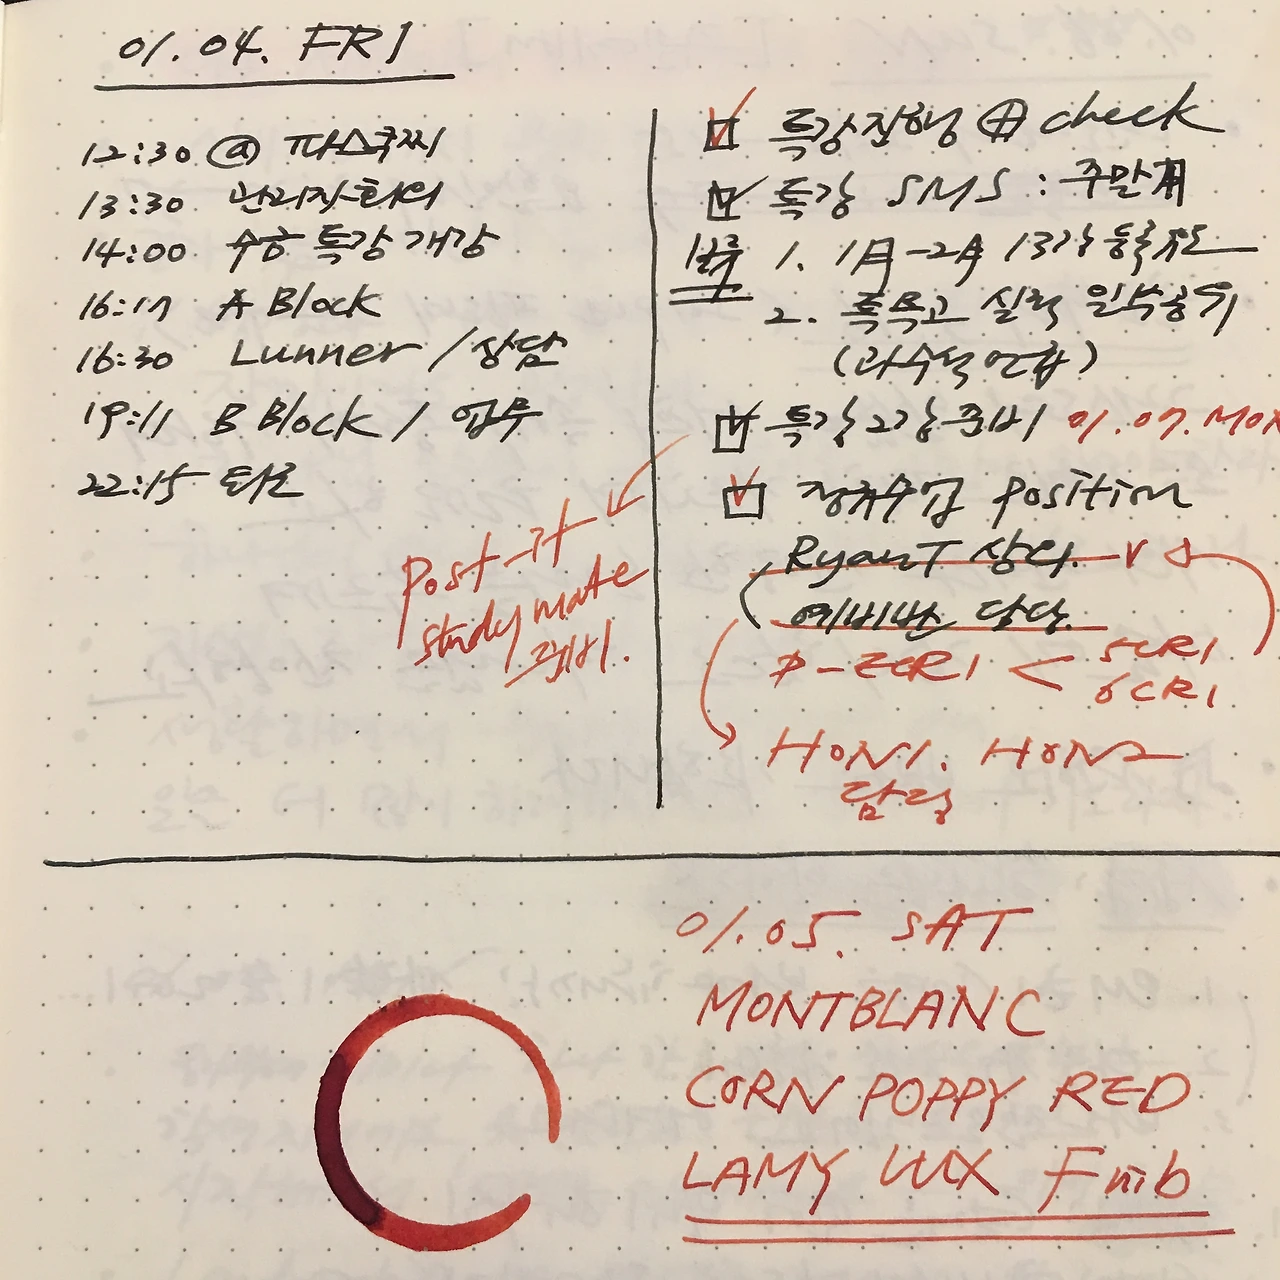 01.04. FRI
12:30 @ 파스쿠찌
13:30 관리자회의
14:00 수능 특강 개강
16:17 A Block
16:30 Lunner / 상담
19:11 B Block / 업무
22:15 퇴근
특강진행 check
특강 SMS : 주말用
1. 1月-2月 13강
2. 특목고 실력
특강 2강 준비 01.07. MON
정규수업 position
RyanT 상의.
예비반 담당.
5CR1
6CR1
HON1. HON2
담당
Post-it
study mate
준비.
01.05. SAT
MONTBLANC
CORN POPPY RED
LAMY LUX F nib